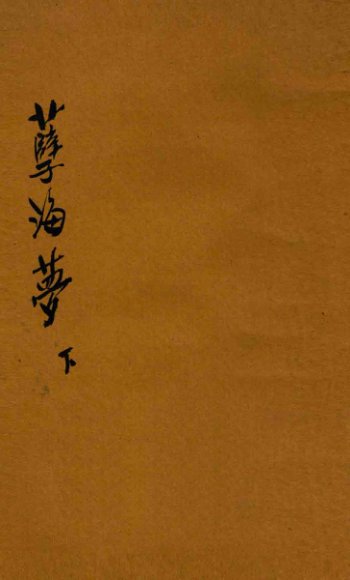 孽海夢
下